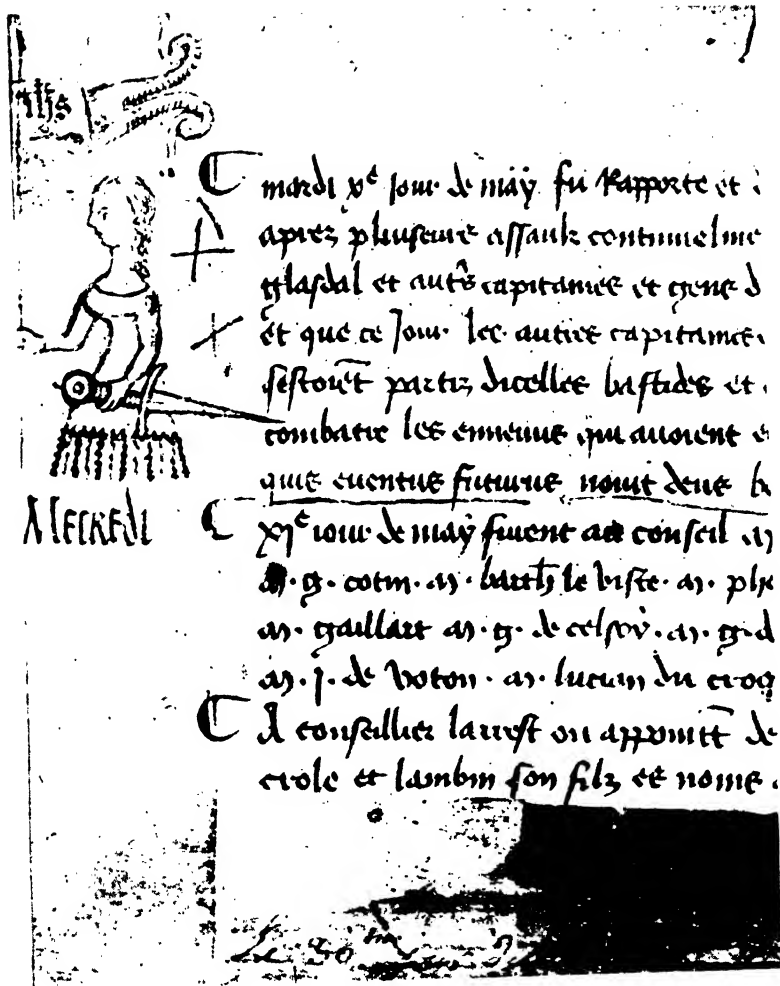 ihs
mardi xe jour de may fu Rapporte et
aprez pluseurs assaulz continuelme
glasdal et autrs capitaines et gens d
et que ce Jour les autres capitaines
sestoiet partiz dicelles bastides et
combatre les ennemis qui avoient e
quis eventus futurus novit deus b
MERCREDI
xje iour de may furent au conseil m
m. g. cotin. m. barth le viste. m. phe
m. gaillart m. g. de celsoy. m. g. d
m. J. de voton. m. lucian du croq
A conseillier larrest ou appointt de
crole et lambin son filz es noms